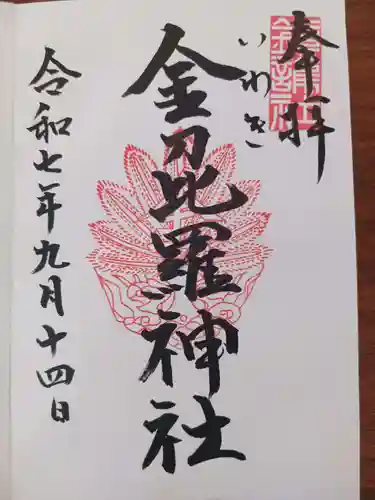 奉拝
いわき
金毘羅神社
令和七年九月十四日